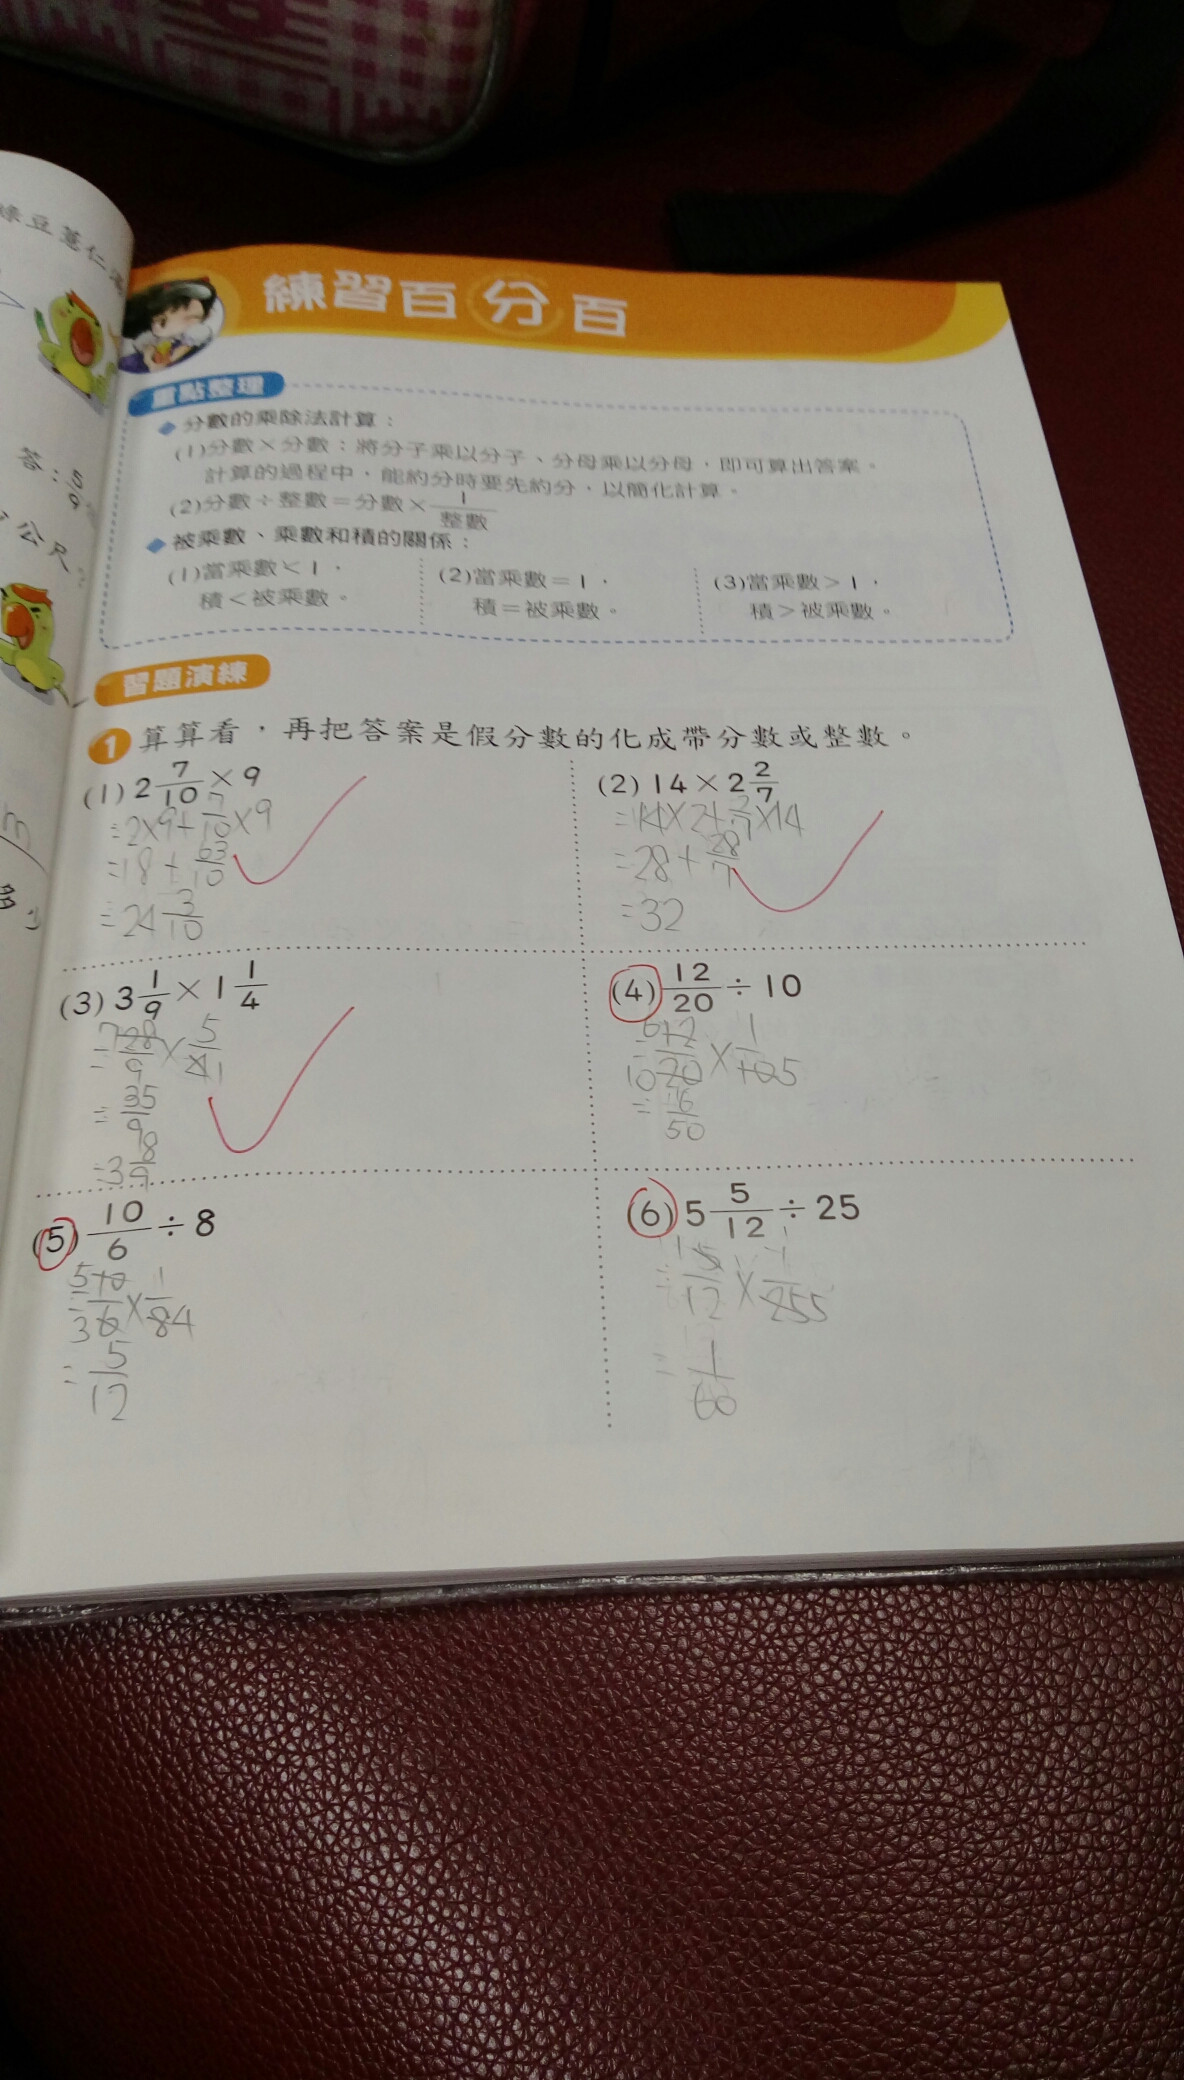 綠豆薏仁
答：5/9
公尺
m
多少
練習百分百
重點整理
◆分數的乘除法計算：
(1)分數×分數：將分子乘以分子、分母乘以分母，即可算出答案。
計算的過程中，能約分時要先約分，以簡化計算。
(2)分數÷整數＝分數×1/整數
◆被乘數、乘數和積的關係：
(1)當乘數＜1，
積＜被乘數。
(2)當乘數＝1，
積＝被乘數。
(3)當乘數＞1，
積＞被乘數。
習題演練
1 算算看，再把答案是假分數的化成帶分數或整數。
(1) 2 7/10 × 9
=2×9+7/10×9
=18+63/10
=24 3/10
(2) 14 × 2 2/7
=14×2+2/7×14
=28+28/7
=32
(3) 3 1/9 × 1 1/4
=28/9×5/4
=35/9
=3 8/9
(4) 12/20 ÷ 10
=12/20×1/10
50
(5) 10/6 ÷ 8
=10/6×1/8
=5/12
(6) 5 5/12 ÷ 25
=5/12×1/25
=1/60